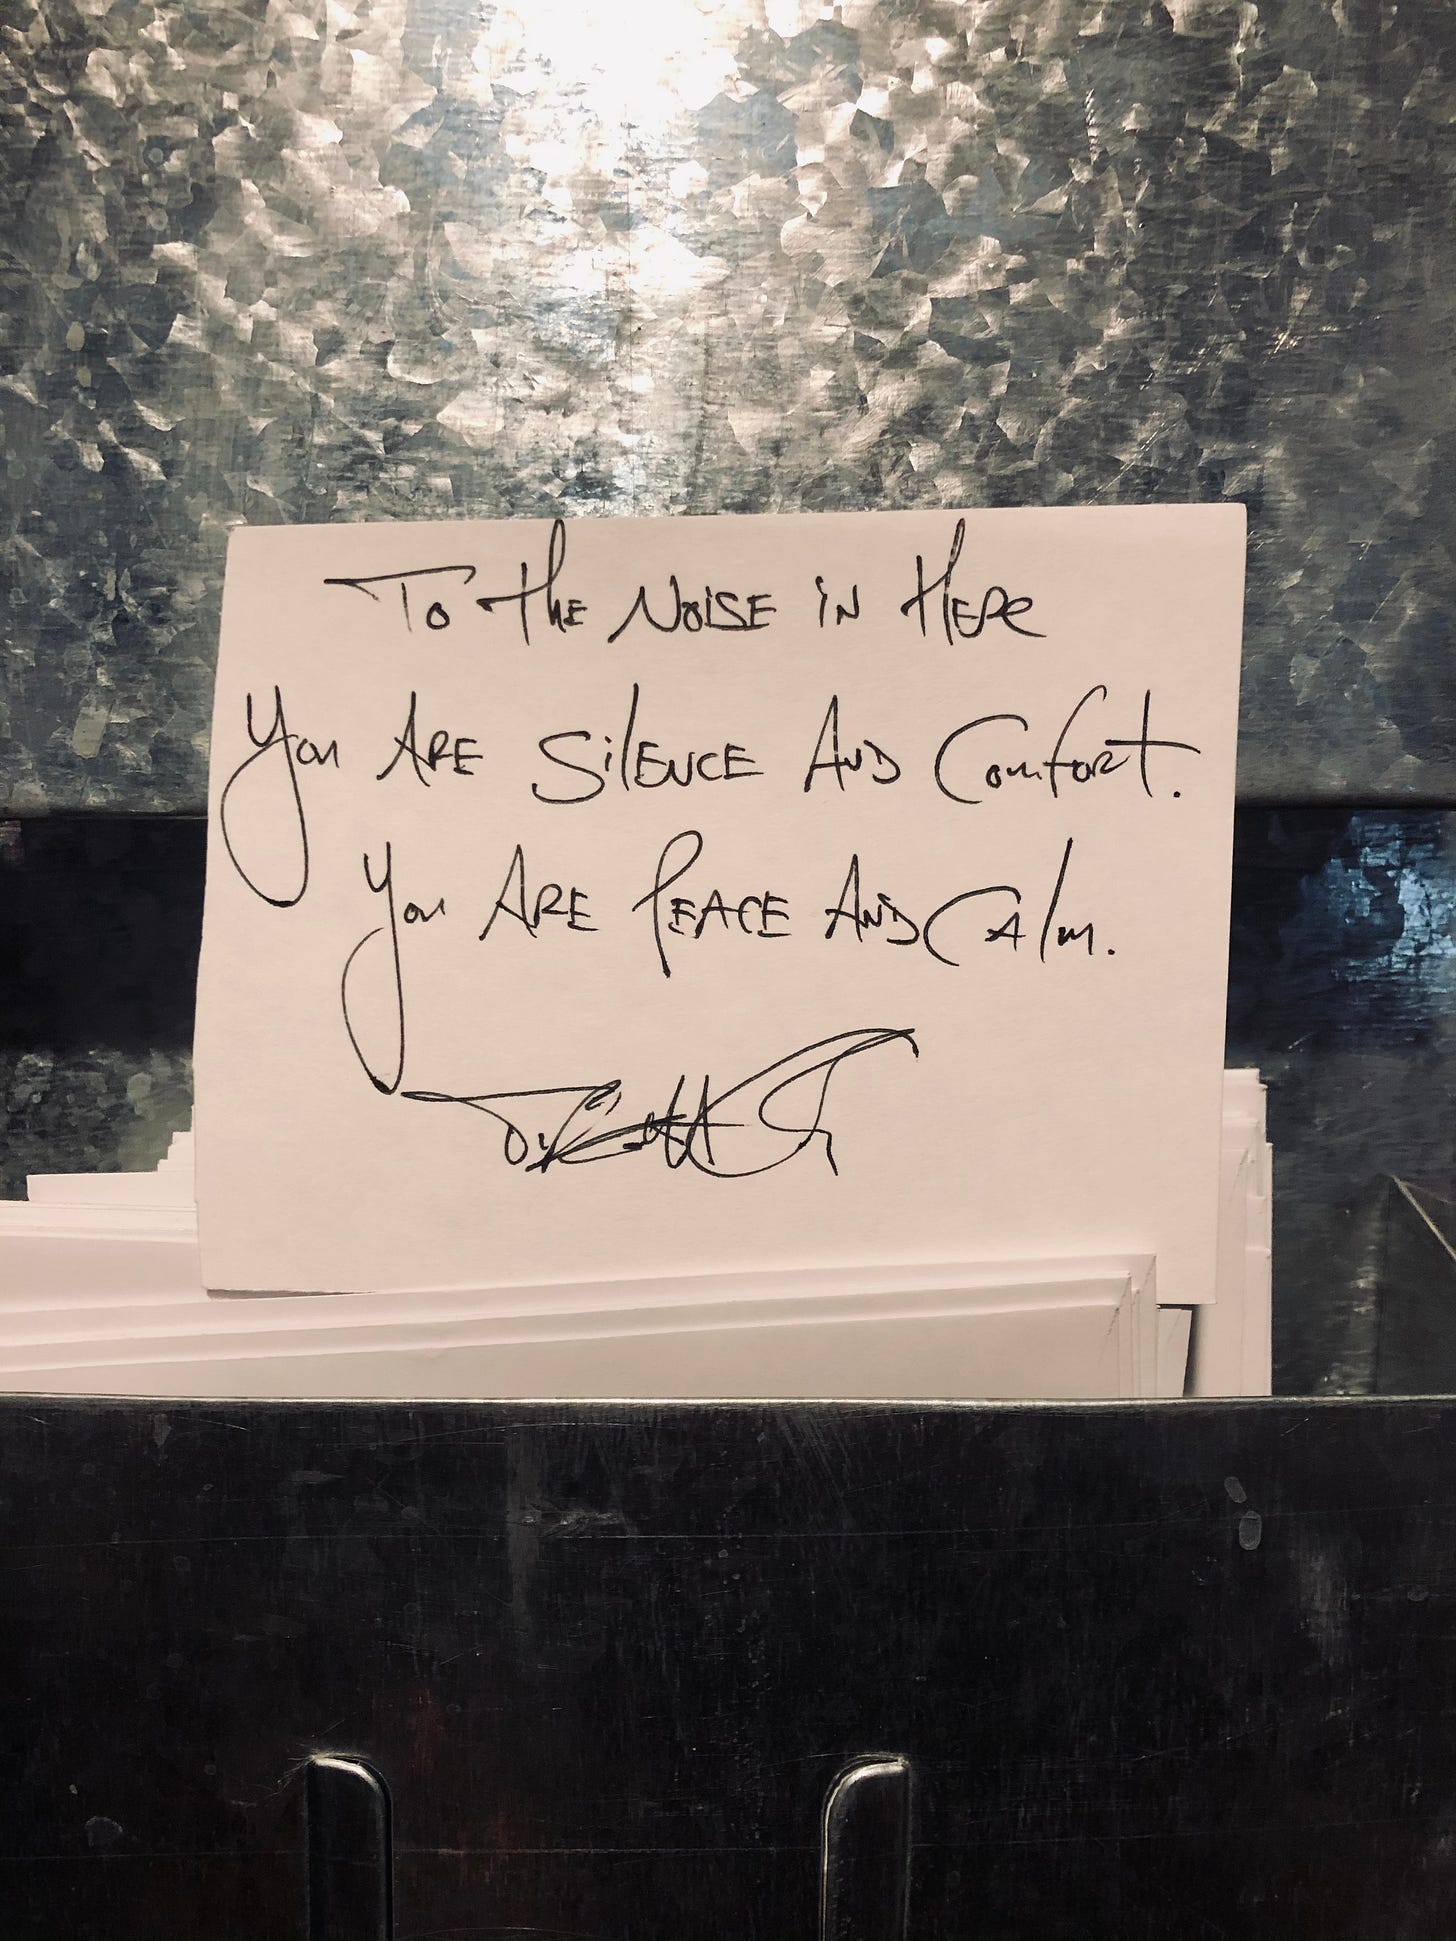 To the Noise in Here
You Are Silence And Comfort.
You Are Peace And Calm.